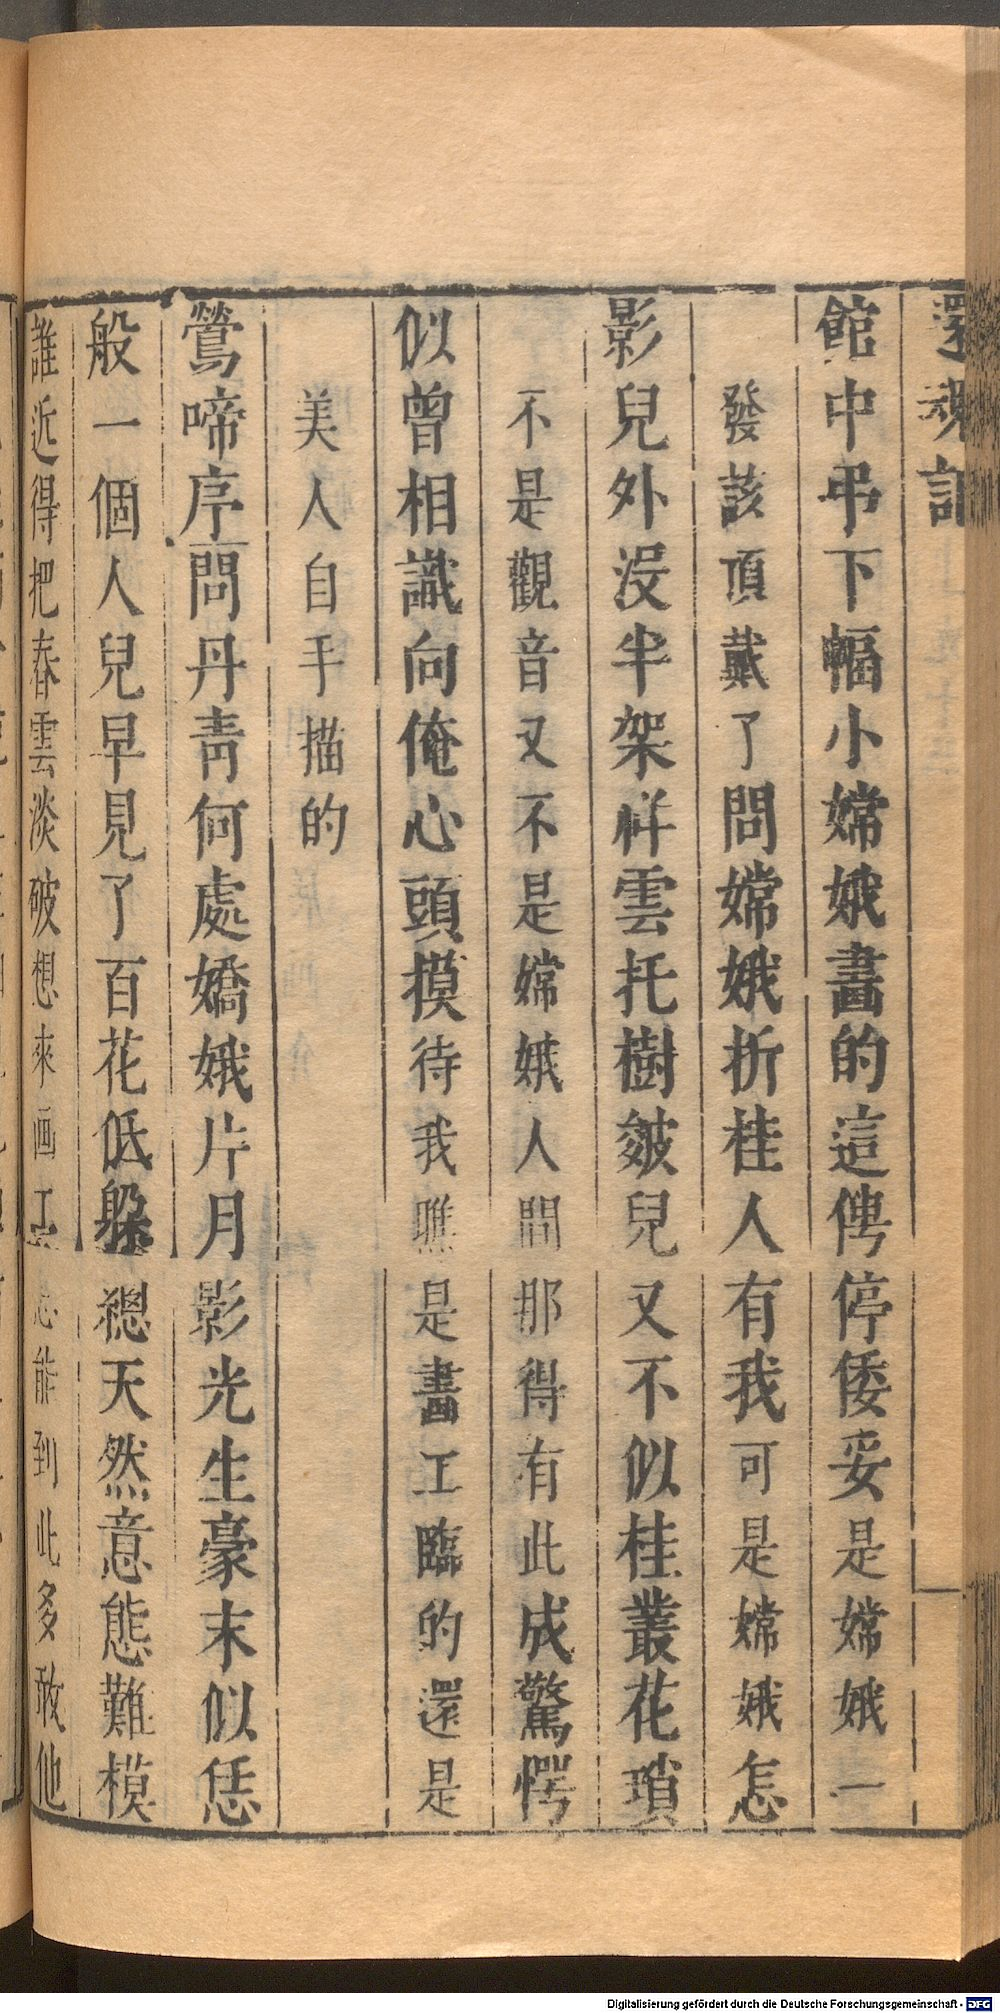 還魂記
館中弔下幅小嫦娥畫的這俜停倭妥是嫦娥一
發該頂戴了問嫦娥折桂人有我可是嫦娥怎
影兒外沒半架祥雲托樹皴兒又不似桂叢花瑣
不是觀音又不是嫦娥人間那得有此成驚愕
似曾相識向俺心頭摸待我瞧是畫工臨的還是
美人自手描的
鶯啼序問丹靑何處嬌娥片月影光生豪末似恁
般一個人兒早見了百花低躲總天然意態難模
誰近得把春雲淡破想來画工怎能到此多敢他
Digitalisierung gefördert durch die Deutsche Forschungsgemeinschaft - DFG